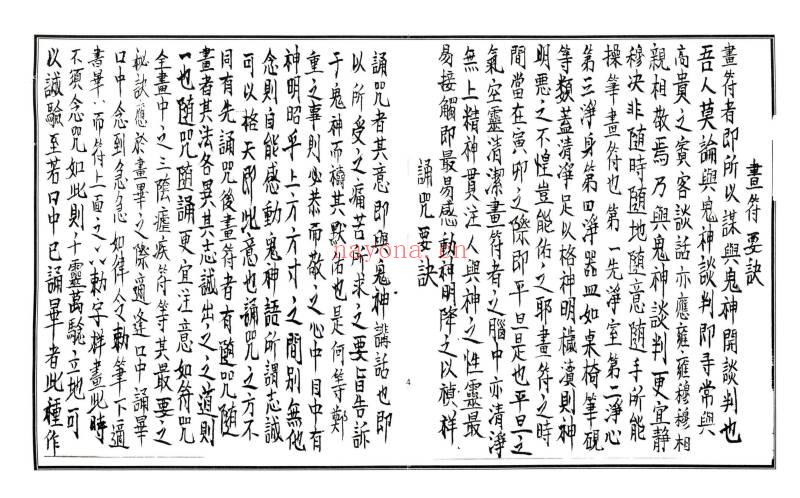 畫符要訣
畫符者即所以謀與鬼神開談判也
吾人莫論與鬼神談判即尋常與
高貴之賓客談話亦應雍雍穆穆相
親相敬焉乃與鬼神談判更宜靜
穆決非隨時隨地隨意隨手所能
操筆畫符也第一先淨室第二淨心
第三淨身第四淨器皿如桌椅筆硯
等類蓋清淨足以格神明穢瀆則神
明惡之不惶豈能佑之耶畫符之時
間當在寅卯之際即平旦是也平旦之
氣空靈清潔畫符者之腦中亦清淨
無上精神貫注人與神之性靈最
易接觸即最易感動神明降之以禎祥
誦咒要訣
誦咒者其意即與鬼神講話也即
以所受之痛苦所求之要旨告訴
于鬼神而禱其默佑也是何等鄭
重之事則必恭而敬之心中目中有
神明昭乎上方方寸之間別無他
念則自能感動鬼神語所謂志誠
可以格天即此意也誦咒之方不
同有先誦咒後畫符者有隨咒隨
畫者其法各異其志誠出之之道則
一也隨咒隨誦更宜注意如符咒
全畫中之三陰瘧疾符等其最要之
秘訣應於畫畢之際適逢口中誦畢
口中念到急急如律令勅筆下適
書畢八而符上面之八勅字樣畫此時
不須念咒如此則十靈萬驗立地可
以誠驗至若口中已誦畢者此種作
4
nayona.cn